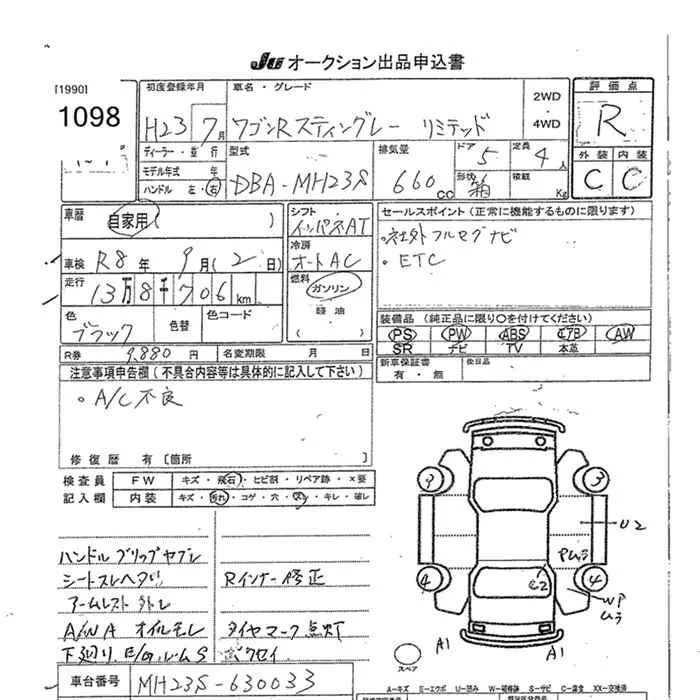 JU オークション出品申込書
[1990]
1098
初度登録年月
H23 7月
車名・グレード
ワゴンRスティングレー リミテッド
2WD
・
4WD
評価点
R
ディーラー・並行
モデル年式 年
ハンドル 左・右
型式
DBA-MH23S
排気量
660cc
ドア
5
形状
箱
定員
4人
積載
Kg
外装 内装
C C
車歴
自家用( )
車検 R8年 9月(2日)
走行
13万8千706km
色
ブラック
色替
色コード
シフト
インパネAT
冷房
オートAC
燃料
ガソリン
・
軽油
( )
セールスポイント(正常に機能するものに限ります)
・社外フルセグナビ
・ETC
装備品(純正品に限り〇を付けてください)
PS PW ABS エアB AW
SR ナビ TV 本革
R券 9,880円
名変期限 月 日
新車保証書
有・無
後日品
注意事項申告欄(不具合内容等は具体的に記入して下さい)
・A/C不良
修復歴 有[箇所
検査員
記入欄
FW キズ・飛石・ヒビ割・リペア跡・×要
内装 キズ・汚れ・コゲ・穴・スレ・キレ・破レ
シートスレヘタリ
Rインナー修正
アームレスト外レ
A/W A オイルモレ
タイヤマーク点灯
車台番号 MH23S-630033
9
3
U2
Pムラ
4
C2
4
WP
ムラ
A1
A1
スペア
A=キズ E=エクボ U=凹み W=補修跡 S=サビ C=腐食 XX=交換済